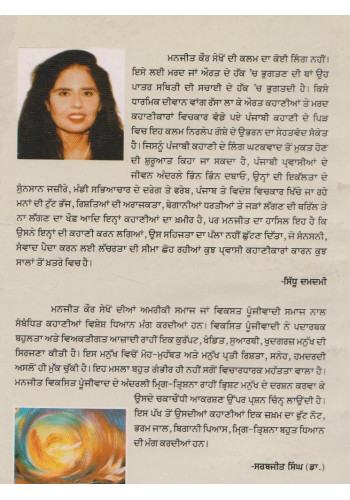 ਮਨਜੀਤ ਕੌਰ ਸੇਖੋਂ ਦੀ ਕਲਮ ਦਾ ਕੋਈ ਲਿੰਗ ਨਹੀਂ।
ਇਸੇ ਲਈ ਮਰਦ ਜਾਂ ਔਰਤ ਦੇ ਹੱਕ 'ਚ ਭੁਗਤਣ ਦੀ ਥਾਂ ਉਹ
ਪਾਤਰ ਸਥਿਤੀ ਦੀ ਸਚਾਈ ਦੇ ਹੱਕ 'ਚ ਭੁਗਤਦੀ ਹੈ। ਕਿਸੇ
ਧਾਰਮਿਕ ਦੀਵਾਨ ਵਾਂਗ ਰੱਸਾ ਲਾ ਕੇ ਔਰਤ ਕਹਾਣੀਆਂ ਤੇ ਮਰਦ
ਕਹਾਣੀਕਾਰਾਂ ਵਿਚਕਾਰ ਵੰਡੇ ਪਏ ਪੰਜਾਬੀ ਕਹਾਣੀ ਦੇ ਪਿੜ
ਵਿਚ ਇਹ ਕਲਮ ਨਿਰਲੇਪ ਗੱਸ਼ੇ ਦੇ ਉਭਰਨ ਦਾ ਸੇਹਤਵੰਦ ਸੰਕੇਤ
ਹੈ। ਜਿਸਨੂੰ ਪੰਜਾਬੀ ਕਹਾਣੀ ਦੇ ਲਿੰਗ ਘਟਕਵਾਦ ਤੋਂ ਮੁਕਤ ਹੋਣ
ਦੀ ਸ਼ੁਰੂਆਤ ਕਿਹਾ ਜਾ ਸਕਦਾ ਹੈ, ਪੰਜਾਬੀ ਪ੍ਰਵਾਸੀਆਂ ਦੇ
ਜੀਵਨ ਅੰਦਰਲੇ ਭਿੰਨ ਭਿੰਨ ਦਬਾਓ, ਉਨ੍ਹਾਂ ਦੀ ਇਕੱਲਤਾ ਦੇ
ਸੁੰਨਸਾਨ ਜਜ਼ੀਰੇ, ਮੰਡੀ ਸਭਿਆਚਾਰ ਦੇ ਦਰੇਗ ਤੇ ਫਰੇਬ, ਪੰਜਾਬ ਤੇ ਵਿਦੇਸ਼ ਵਿਚਕਾਰ ਖਿੱਚੇ ਜਾ ਰਹੇ
ਮਨਾਂ ਦੀ ਟੁੱਟ ਭੱਜ, ਰਿਸ਼ਤਿਆਂ ਦੀ ਅਰਾਜਕਤਾ, ਬੇਗਾਨੀਆਂ ਧਰਤੀਆਂ ਤੇ ਜੜਾਂ ਲੱਗਣ ਦੀ ਥਰਿੱਲ ਤੇ
ਨਾ ਲੱਗਣ ਦਾ ਖੌਫ਼ ਆਦਿ ਇਨ੍ਹਾਂ ਕਹਾਣੀਆਂ ਦਾ ਖ਼ਮੀਰ ਹੈ, ਪਰ ਮਨਜੀਤ ਦਾ ਹਾਸਿਲ ਇਹ ਹੈ ਕਿ
ਉਸਨੇ ਇਨ੍ਹਾਂ ਦੀ ਕਹਾਣੀ ਕਰਨ ਲਗਿਆਂ, ਉਸ ਸਹਿਜਤਾ ਦਾ ਪੱਲਾ ਨਹੀਂ ਛੁੱਟਣ ਦਿੱਤਾ, ਜੋ ਸੰਨਸਨੀ,
ਸੰਵਾਦ ਪੈਦਾ ਕਰਨ ਲਈ ਲੱਚਰਤਾ ਦੀ ਸੀਮਾ ਛੋਹ ਰਹੀਆਂ ਕੁਝ ਪ੍ਰਵਾਸੀ ਕਹਾਣੀਕਾਰਾਂ ਕਾਰਨ ਕੁਝ
ਸਾਲਾਂ ਤੋਂ ਖ਼ਤਰੇ ਵਿਚ ਹੈ।
-ਸਿੱਧੂ ਦਮਦਮੀ
ਮਨਜੀਤ ਕੌਰ ਸੇਖੋਂ ਦੀਆਂ ਅਮਰੀਕੀ ਸਮਾਜ ਜਾਂ ਵਿਕਸਤ ਪੂੰਜੀਵਾਦੀ ਸਮਾਜ ਨਾਲ
ਸੰਬੰਧਿਤ ਕਹਾਣੀਆਂ ਵਿਸ਼ੇਸ਼ ਧਿਆਨ ਮੰਗ ਕਰਦੀਆਂ ਹਨ। ਵਿਕਸਿਤ ਪੂੰਜੀਵਾਦੀ ਨੇ ਪਦਾਰਥਕ
ਬਹੁਲਤਾ ਅਤੇ ਵਿਅਕਤੀਗਤ ਆਜ਼ਾਦੀ ਰਾਹੀਂ ਇਕ ਕੁਰੱਪਟ, ਖੰਡਿਤ, ਸੁਆਰਥੀ, ਖੁਦਗਰਜ਼ ਮਨੁੱਖ ਦੀ
ਸਿਰਜਣਾ ਕੀਤੀ ਹੈ। ਇਸ ਮਨੁੱਖ ਵਿਚੋਂ ਮੋਹ-ਮੁਹੱਬਤ ਅਤੇ ਮਨੁੱਖ ਪ੍ਰਤੀ ਰਿਸ਼ਤਾ, ਸਨੇਹ, ਹਮਦਰਦੀ
ਅਸਲੋਂ ਹੀ ਮੁੱਕ ਚੁੱਕੀ ਹੈ। ਇਹ ਮਸਲਾ ਬਹੁਤ ਗੰਭੀਰ ਹੀ ਨਹੀਂ ਸਗੋਂ ਵਿਚਾਰਧਾਰਕ ਮਹੱਤਤਾ ਵਾਲਾ ਹੈ।
ਮਨਜੀਤ ਵਿਕਸਿਤ ਪੂੰਜੀਵਾਦ ਦੇ ਅੰਦਰਲੀ ਮ੍ਰਿਗ-ਤ੍ਰਿਸ਼ਨਾ ਰਾਹੀਂ ਭ੍ਰਿਸ਼ਟ ਮਨੁੱਖ ਦੇ ਦਰਸ਼ਨ ਕਰਵਾ ਕੇ
ਉਸਦੇ ਚਕਾਚੌਂਧੀ ਆਕਰਸ਼ਣ ਉੱਪਰ ਪ੍ਰਸ਼ਨ ਚਿੰਨ੍ਹ ਲਾਉਂਦੀ ਹੈ।
ਇਸ ਪੱਖ ਤੋਂ ਉਸਦੀਆਂ ਕਹਾਣੀਆਂ ਇਕ ਜ਼ਖ਼ਮ ਦਾ ਫੁੱਟ ਨੋਟ,
ਭਰਮ ਜਾਲ, ਬਿਗਾਨੀ ਪਿਆਸ, ਮ੍ਰਿਗ-ਤ੍ਰਿਸ਼ਨਾ ਬਹੁਤ ਧਿਆਨ
ਦੀ ਮੰਗ ਕਰਦੀਆਂ ਹਨ।
-ਸਰਬਜੀਤ ਸਿੰਘ (ਡਾ.)